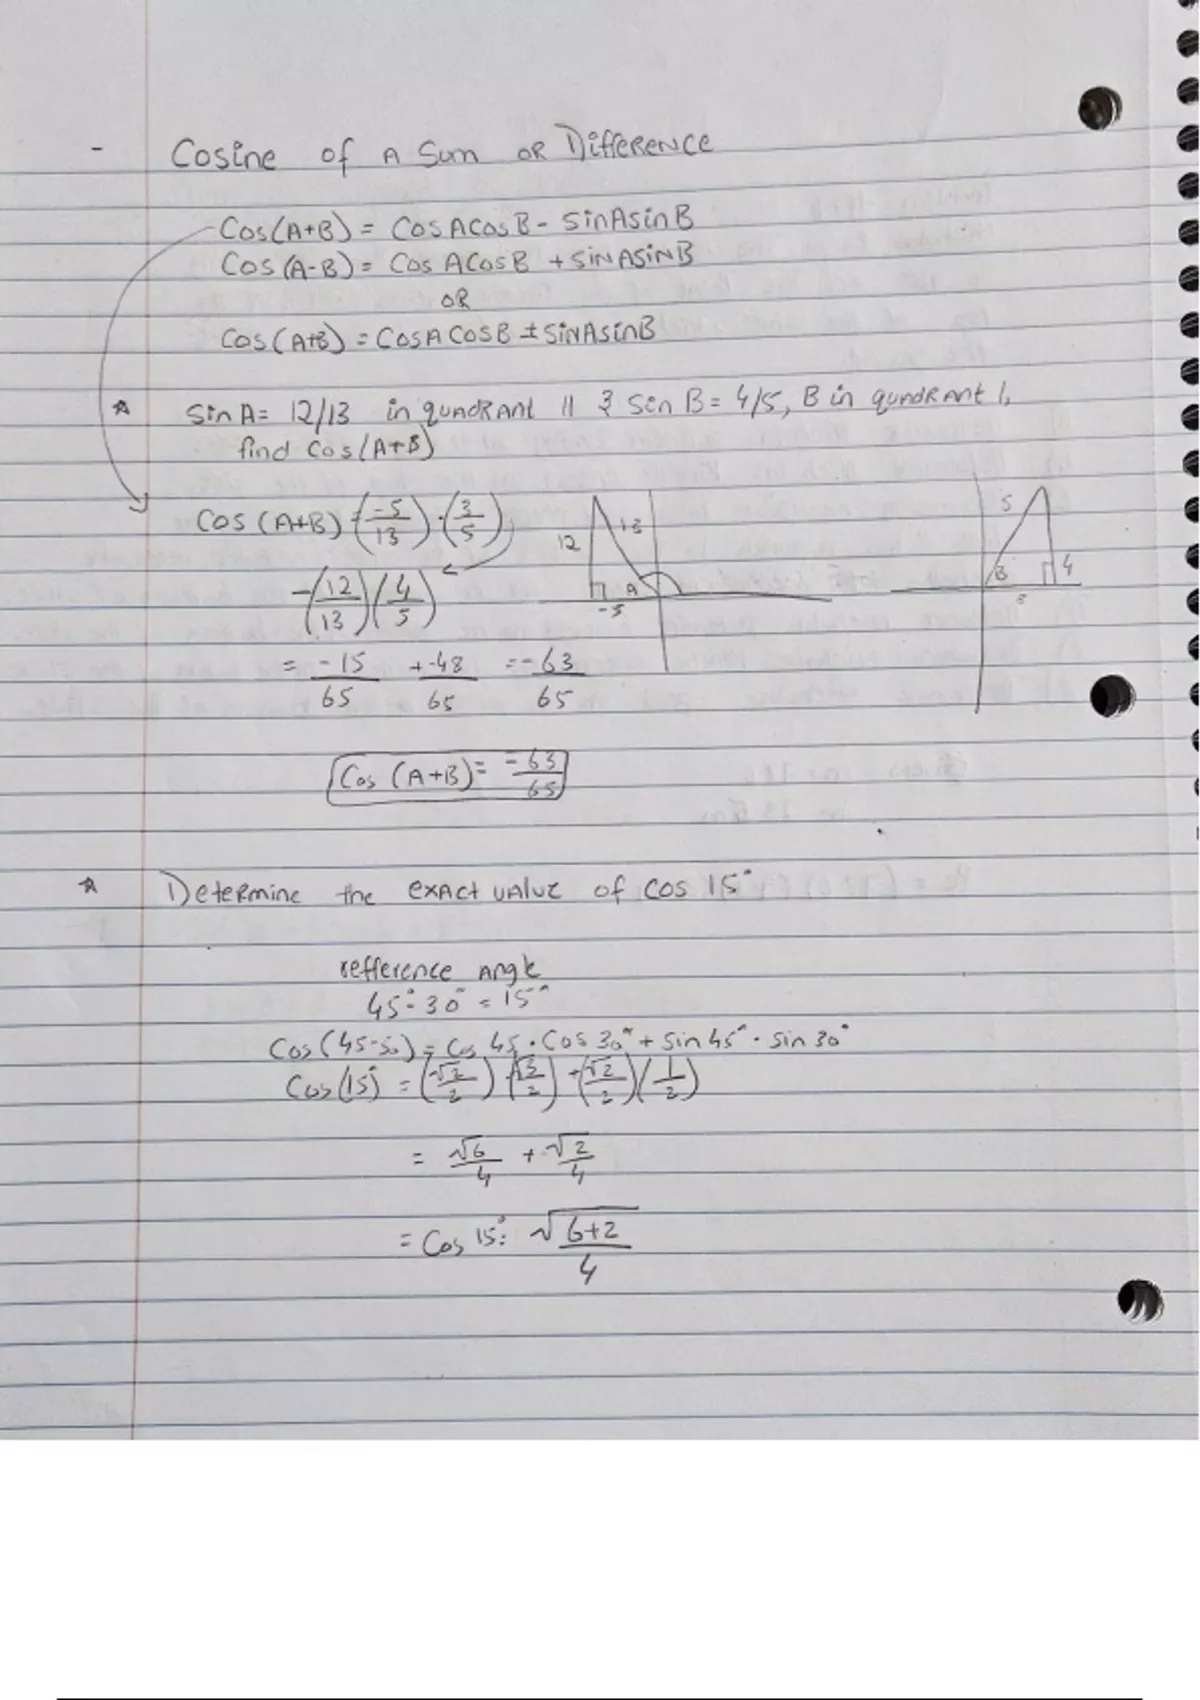 - Cosine of A Sum OR Difference
Cos(A+B) = CosACosB - SinAsinB
Cos(A-B) = Cos ACosB + SiNASiNB
OR
Cos(A±B) = CosACosB ± SiNAsinB
☆ SinA = 12/13 in quadrant II & Sin B = 4/5, B in quadrant 1,
find Cos(A+B)
Cos(A+B) = (-5/13) · (3/5)
-(12/13)(4/5)
= -15/65 + -48/65 = -63/65
Cos (A+B) = -63/65
12 13 A -5
5 B 4
☆ Determine the exact value of cos 15°
refference Angle
45° - 30° = 15°
Cos(45-30) = Cos 45 · Cos 30° + Sin 45° · Sin 30°
Cos(15) = (√2/2)(√3/2) + (√2/2)(1/2)
= √6/4 + √2/4
= Cos 15°: √6+2/4